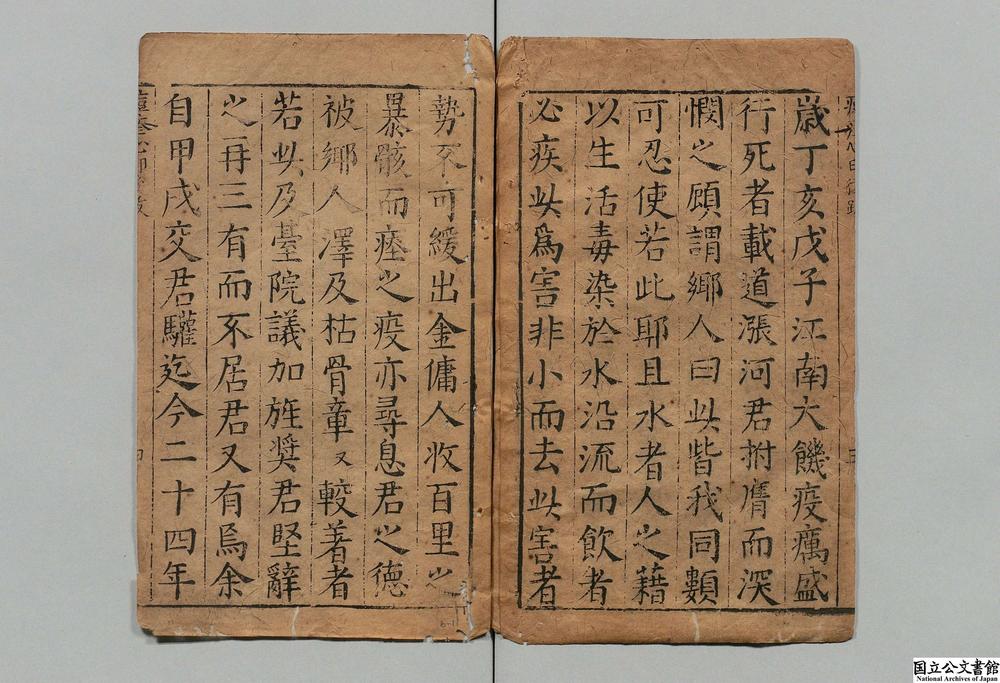 歲丁亥戊子江南大饑疫癘盛
行死者載道漲河君拊膺而深
憫之顧謂鄉人曰此皆我同類
可忍使若此耶且水者人之藉
以生活毒染於水沿流而飲者
必疾此爲害非小而去此害者
勢不可緩出金傭人收百里之
暴骸而瘞之疫亦尋息君之德
被鄉人澤及枯骨章又較著者
若此及臺院議加旌奬君堅辭
之再三有而不居君又有焉余
自甲戌交君驩迄今二十四年
国立公文書館
National Archives of Japan